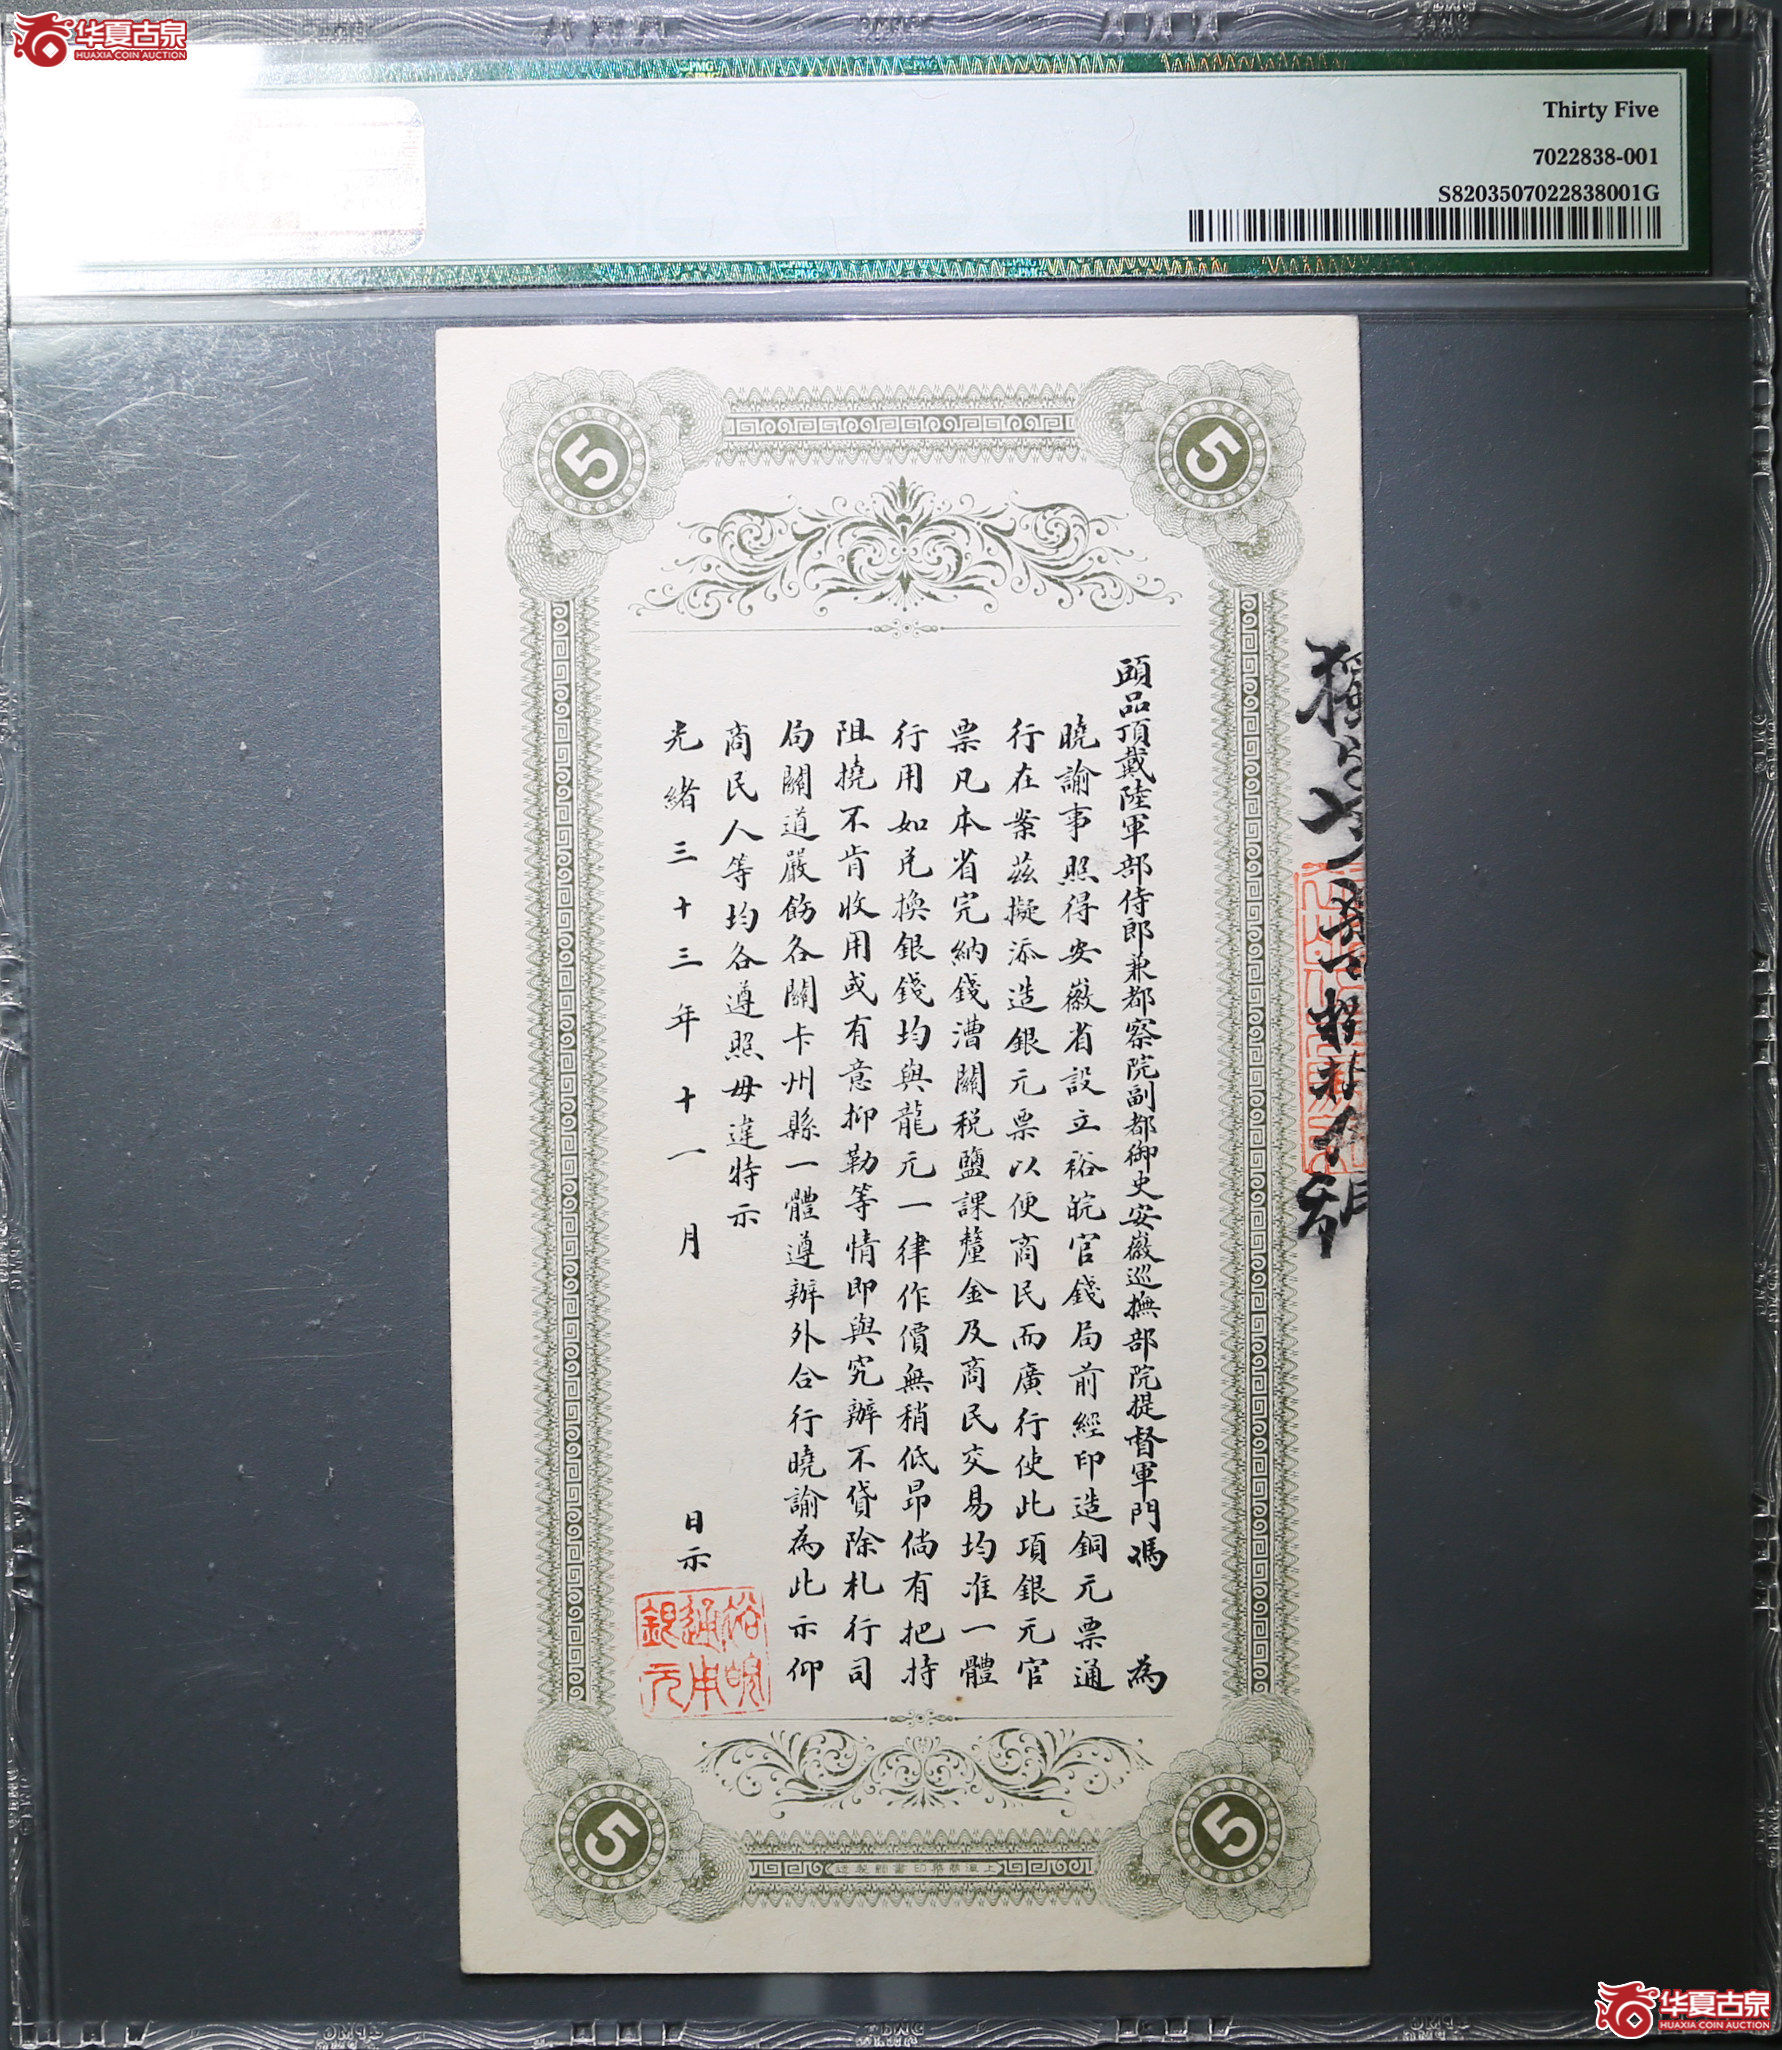 华夏古泉
HUAXIA COIN AUCTION
Thirty Five
7022838-001
S8203507022838001G
5
5
頭品頂戴陸軍部侍郎兼都察院副都御史安徽巡撫部院提督軍門馮 為
曉諭事照得安徽省設立裕皖官錢局前經印造銅元票通
行在案茲擬添造銀元票以便商民而廣行使此項銀元官
票凡本省完納錢漕關稅鹽課釐金及商民交易均准一體
行用如兌換銀錢均與龍元一律作價無稍低昂倘有把持
阻撓不肯收用或有意抑勒等情即與究辦不貸除札行司
局關道嚴飭各關卡州縣一體遵辦外合行曉諭為此示仰
商民人等均各遵照毋違特示
光緒三十三年十一月 日示
裕皖
通用
銀元
5
5
华夏古泉
HUAXIA COIN AUCTION